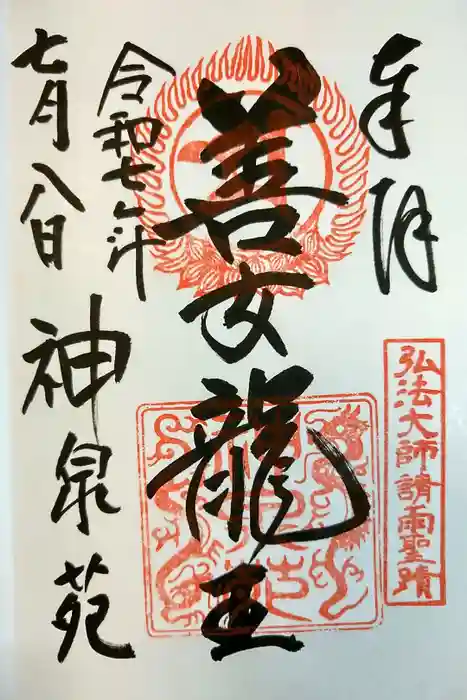 奉拝
弘法大師請雨聖蹟
善女龍王
令和七年
七月八日
神泉苑